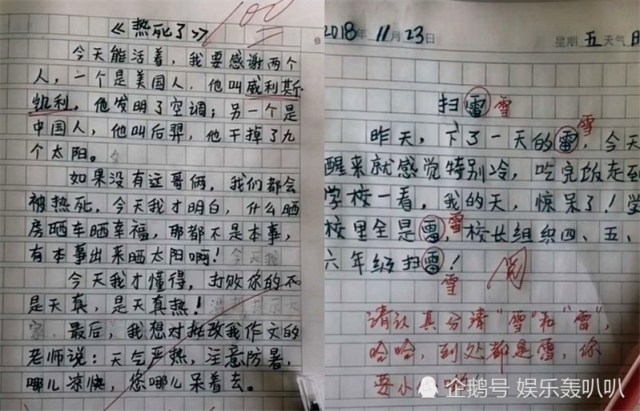 100
《热死了》
今天能活着，我要感谢两个
人，一个是美国人，他叫威利斯
凯利。他发明了空调；另一个是
中国人，他叫后羿，他干掉了九
个太阳。
如果没有这哥俩，我们都会
被热死，今天我才明白，什么晒
房晒车晒幸福，那都不是本事，
有本事出来晒太阳啊！
今天我才懂得，打败你的不
是天真，是天真热！
最后，我想对批改我作文的
老师说：天气严热，注意防暑，
哪儿凉快，您哪儿呆着去。
2018年11月23日 星期五天气
扫雷 雪
昨天，下了一天的雷，今天 雪
醒来就感觉特别冷，吃完饭走到
学校一看，我的天，惊呆了！学
校里全是雷，校长组织四、五、 雪
六年级扫雷！ 雪
阅
请认真分清“雪”和“雷”，
哈哈，到处都是雷，你
要小
企鹅号 娱乐轰叭叭